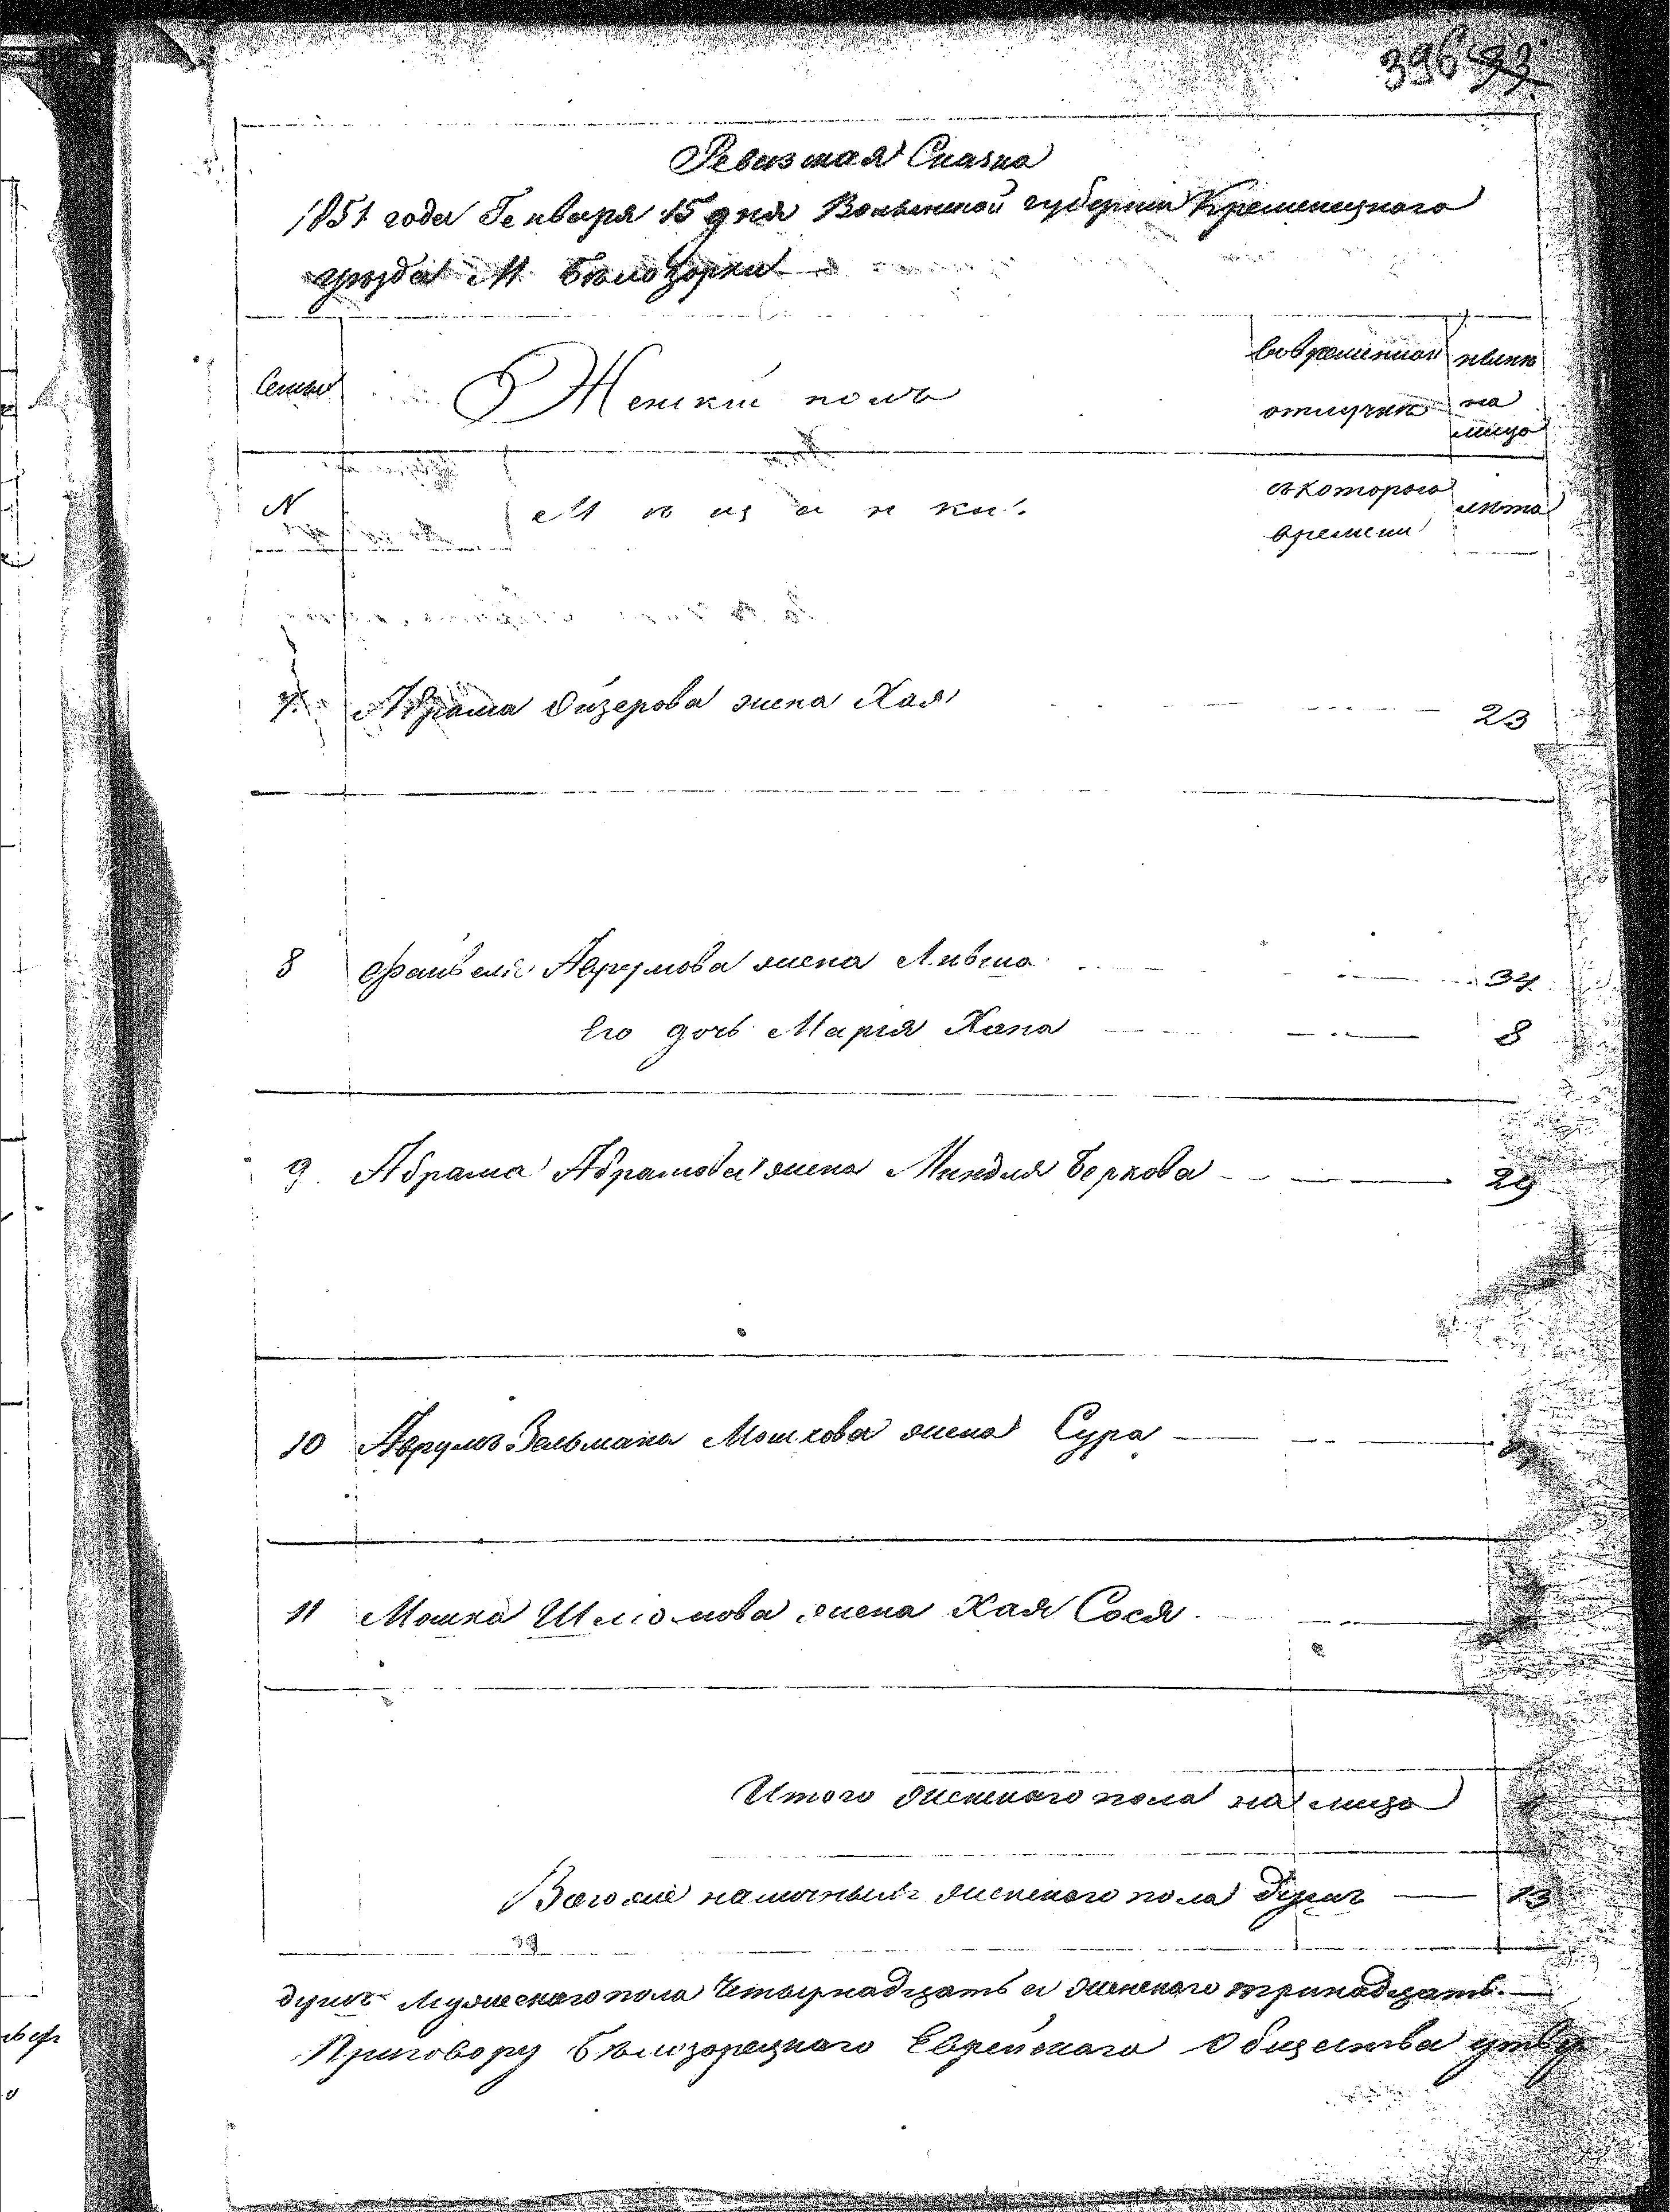 396 33
Ревизкая Сказка
1851 года Генваря 15 дня Волынской губернии Кременецкого
уѣзда М Бѣлозорки
Семьи
Женскій полъ
вовременной отлучкѣ
нынѣ на лицо
N
Мѣщанки
съкоторого времени
лѣта
7. Абрама Ойзерова жена Хая 23
8 Файвеля Аврумова жена Лывша 34
Его дочь Марія Хана 8
9. Абрама Абрамова жена Миндля Беркова 29
10 Аврумъ Зельмана Мошкова жена Сура
11 Мошка Шліомова жена Хая Сося
Итого женского пола на лицо
Всего же наличныхъ женского пола душъ 13
душъ мужеского пола Четырнадцать и женского тринадцать
Приговору Бѣлозорецкого Еврейскаго Общества утвер